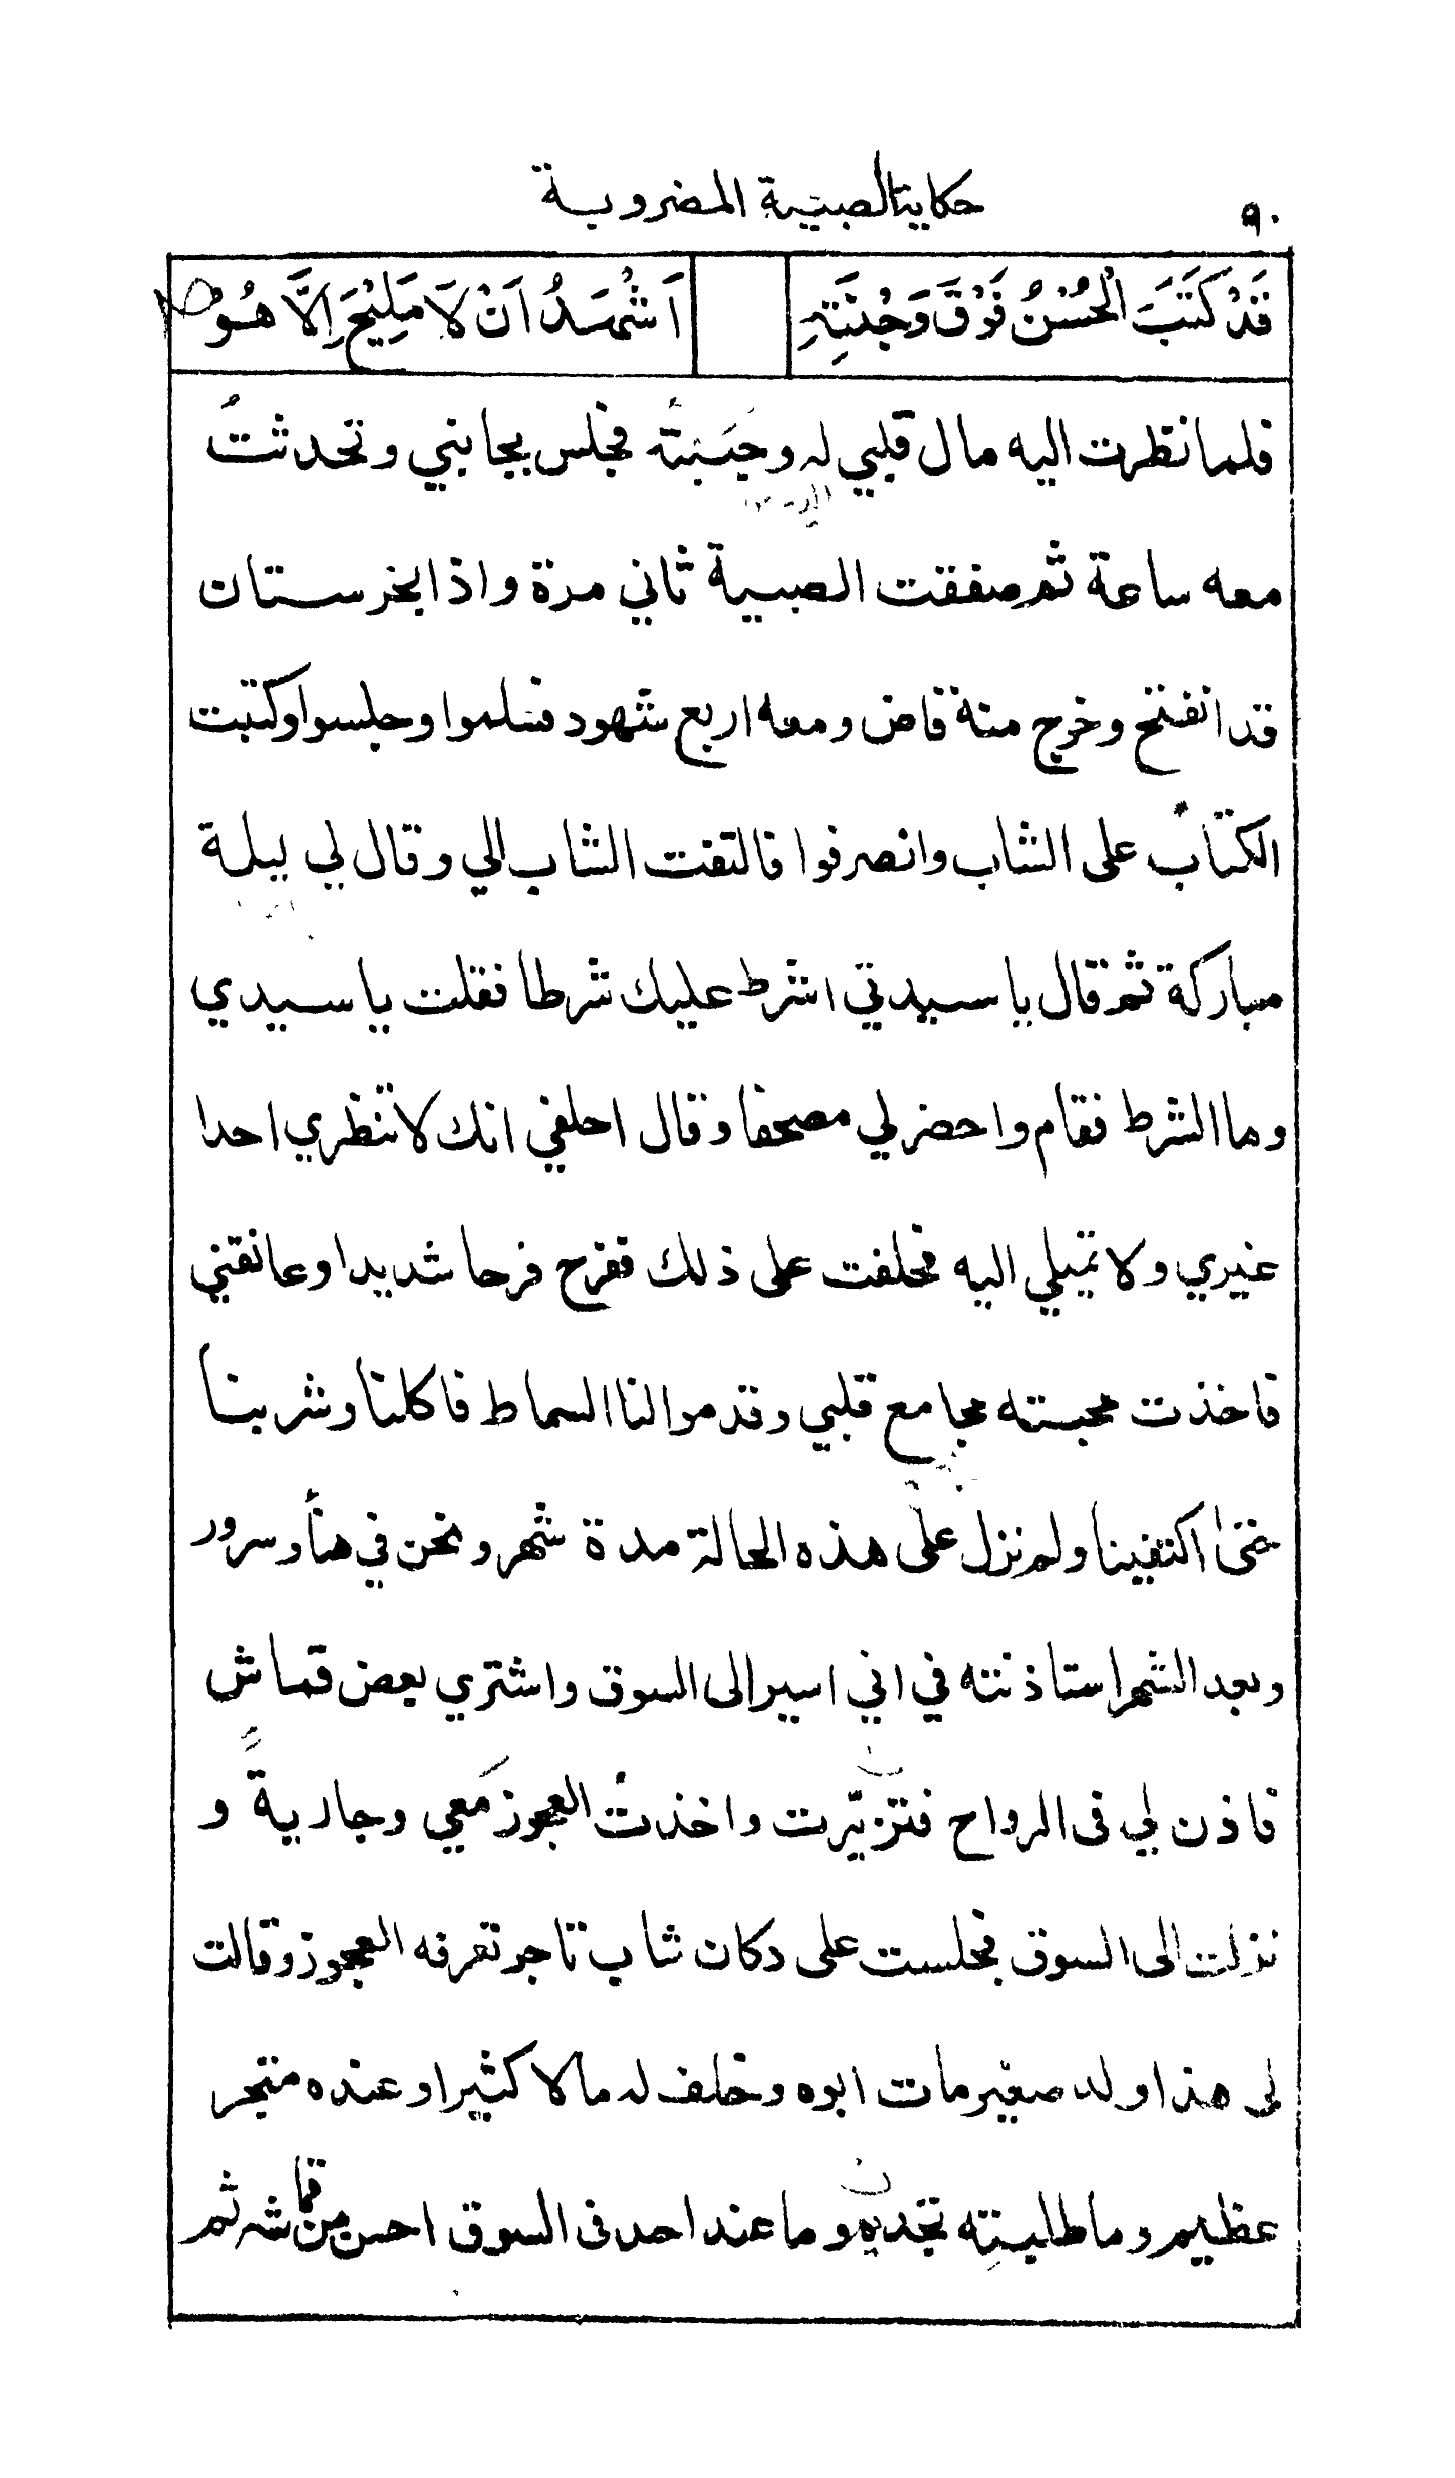 ٩٠ حكاية الصبية المضروبة
قَدْ كَتَبَ الْحُسْنُ فَوْقَ وَجْنَتِهِ اَشْهَدُ اَنْ لَا مَلِيْحَ اِلَّا هُوْ
فلما نظرت اليه مال قلبي له وحبيته فجلس بجانبي وتحدثتُ
معه ساعة ثم صفقت الصبية ثاني مرة واذا بخرستان
قد انفتح وخرج منة قاض ومعه اربع شهود فسلموا وجلسوا وكتبت
الكتابُ على الشاب وانصرفوا فالتفت الشاب الي وقال لي ليلة
مباركة ثم قال يا سيدتي اشرط عليك شرطا فقلت يا سيدي
وما الشرط فقام واحضر لي مصحفا وقال احلفي انك لا تنظري احدا
غيري ولا تميلي اليه فحلفت على ذلك ففرح فرحا شديدا وعانقني
فاخذت محبته مجامع قلبي وقدموا لنا السماط فاكلنا وشربنا
حتى اكتفينا ولم نزل على هذه الحالة مدة شهر ونحن في هنأ وسرور
وبعد الشهر استاذنته في اني اسير الى السوق واشتري بعض قماش
فاذن لي في الرواح فتزيّرت واخذتُ العجوز مَعي وجاريةً و
نزلت الى السوق فجلست على دكان شاب تاجر تعرفه العجوز وقالت
لي هذا ولد صغير مات ابوه وخلف له مالا كثيرا وعنده متجر
عظيم وما طلبتِه تجديه وما عند احد في السوق احسن من قماشه ثم